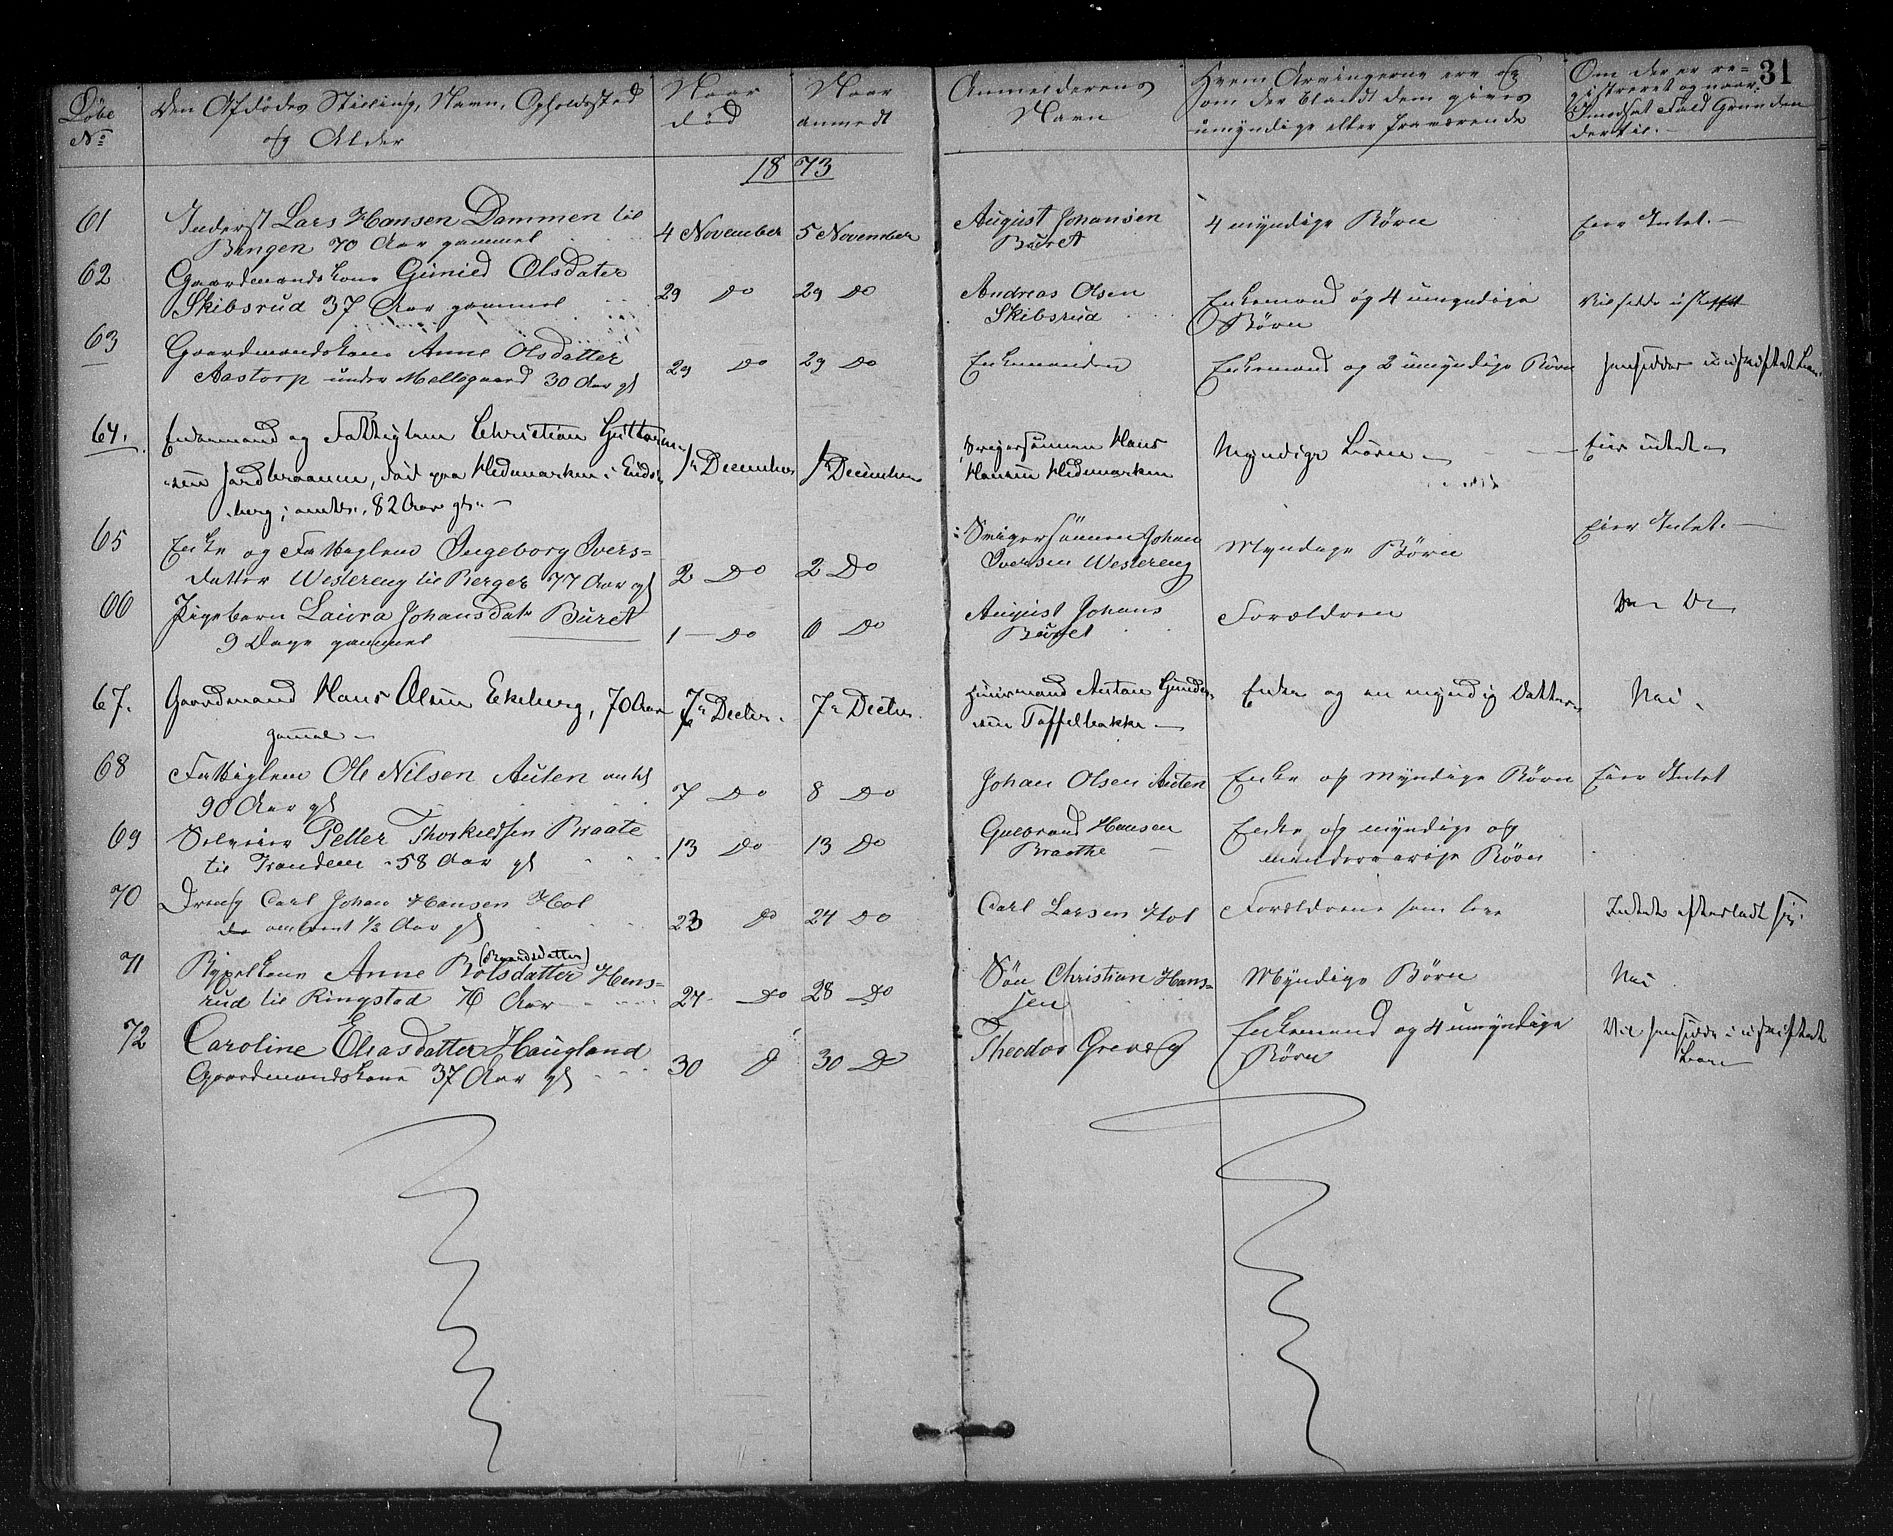 31
Løbe
No
Den Afdødes Stilling, Navn, Opholdssted
og Alder
Naar
død
Naar
anmedt
Anmelderens
Navn
Hvem Arvingerne ere og
om der blandt dem gives
umyndige eller fraværende
Om der er re=
gistreret og naar.
I modsat Fald Grunden
dertil.-
1873
61
Inderst Lars Hansen Dammen til
Bingen 70 Aar gammel
4 November
5 November
August Johansen
Buret
4 myndige Børn
Eier Intet.-
62
Gaardmandskone Gunild Olsdater
Skibsrud 37 Aar gammel
29 Do
29 Do
Andreas Olsen
Skibsrud
Enkemand og 4 umyndige
Børn
63
Gaardmandskone Anne Olsdatter
Aastorp under Mellegaard 30 Aar gl
29 Do
29 Do
Enkemanden
Enkemand og 2 umyndige Børn
hensidder i uskiftet
64.
Enkemand og Fattiglem Christian
død paa Hedemarken i Eids
berg; 82 Aar gl. -
1 December
1 December
Svigersønnen Hans
Hansen Hedemarken
Myndige Børn -
Eier intet -
65
Enke og Fattiglem Ingeborg Ivers=
datter Westereng til Berger 77 Aar gl
2 Do
2 Do
Svigersønnen Johan
Iversen Westereng
Myndige Børn
Eier Intet. -
66
Pigebarn Laura Johansdatr Buret
9 Dage gammel
1 - Do
6 Do
August Johans
Buret
Forældren
Do Do
67.
Gaardmand Hans Olsen Ekeberg, 70 Aar
gamel -
7 Decbr.
7 Decbr.
Huusmand Anton Gunder
sen Toffelbakke -
Enke og en myndig Datter
Nei.
68
Fattiglem Ole Nilsen Auten antl
90 Aar gl
7 Do
8 Do
Johan Olsen Auten
Enke og myndige Børn
Eier Intet
69
Selveier Petter Thorkildsen Braate
til Trandem 58 Aar gl
13 Do
13 Do
Gulbrand Hansen
Braathe
Enke og myndige og
mindreaarige Børn
70
Dreng Carl Johan Hansen Hol
do omtrent 1/2 Aar gl
23 Do
24 Do
Carl Larsen Hol
Forældrene som leve
Intet efterladt sig.
71
Anne Rolsdatter Hens=
rud til Ringstad 76 Aar
27 Do
28 Do
Søn Christian Hans=
sen
Myndige Børn
Nei
72
Caroline Eliasdatter Haugland
Gaardmandskone 37 Aar gl
30 D
30 Do
Theodor Greve
Enkemand og 4 umyndige
Børn
Vil hensidde i uskiftet